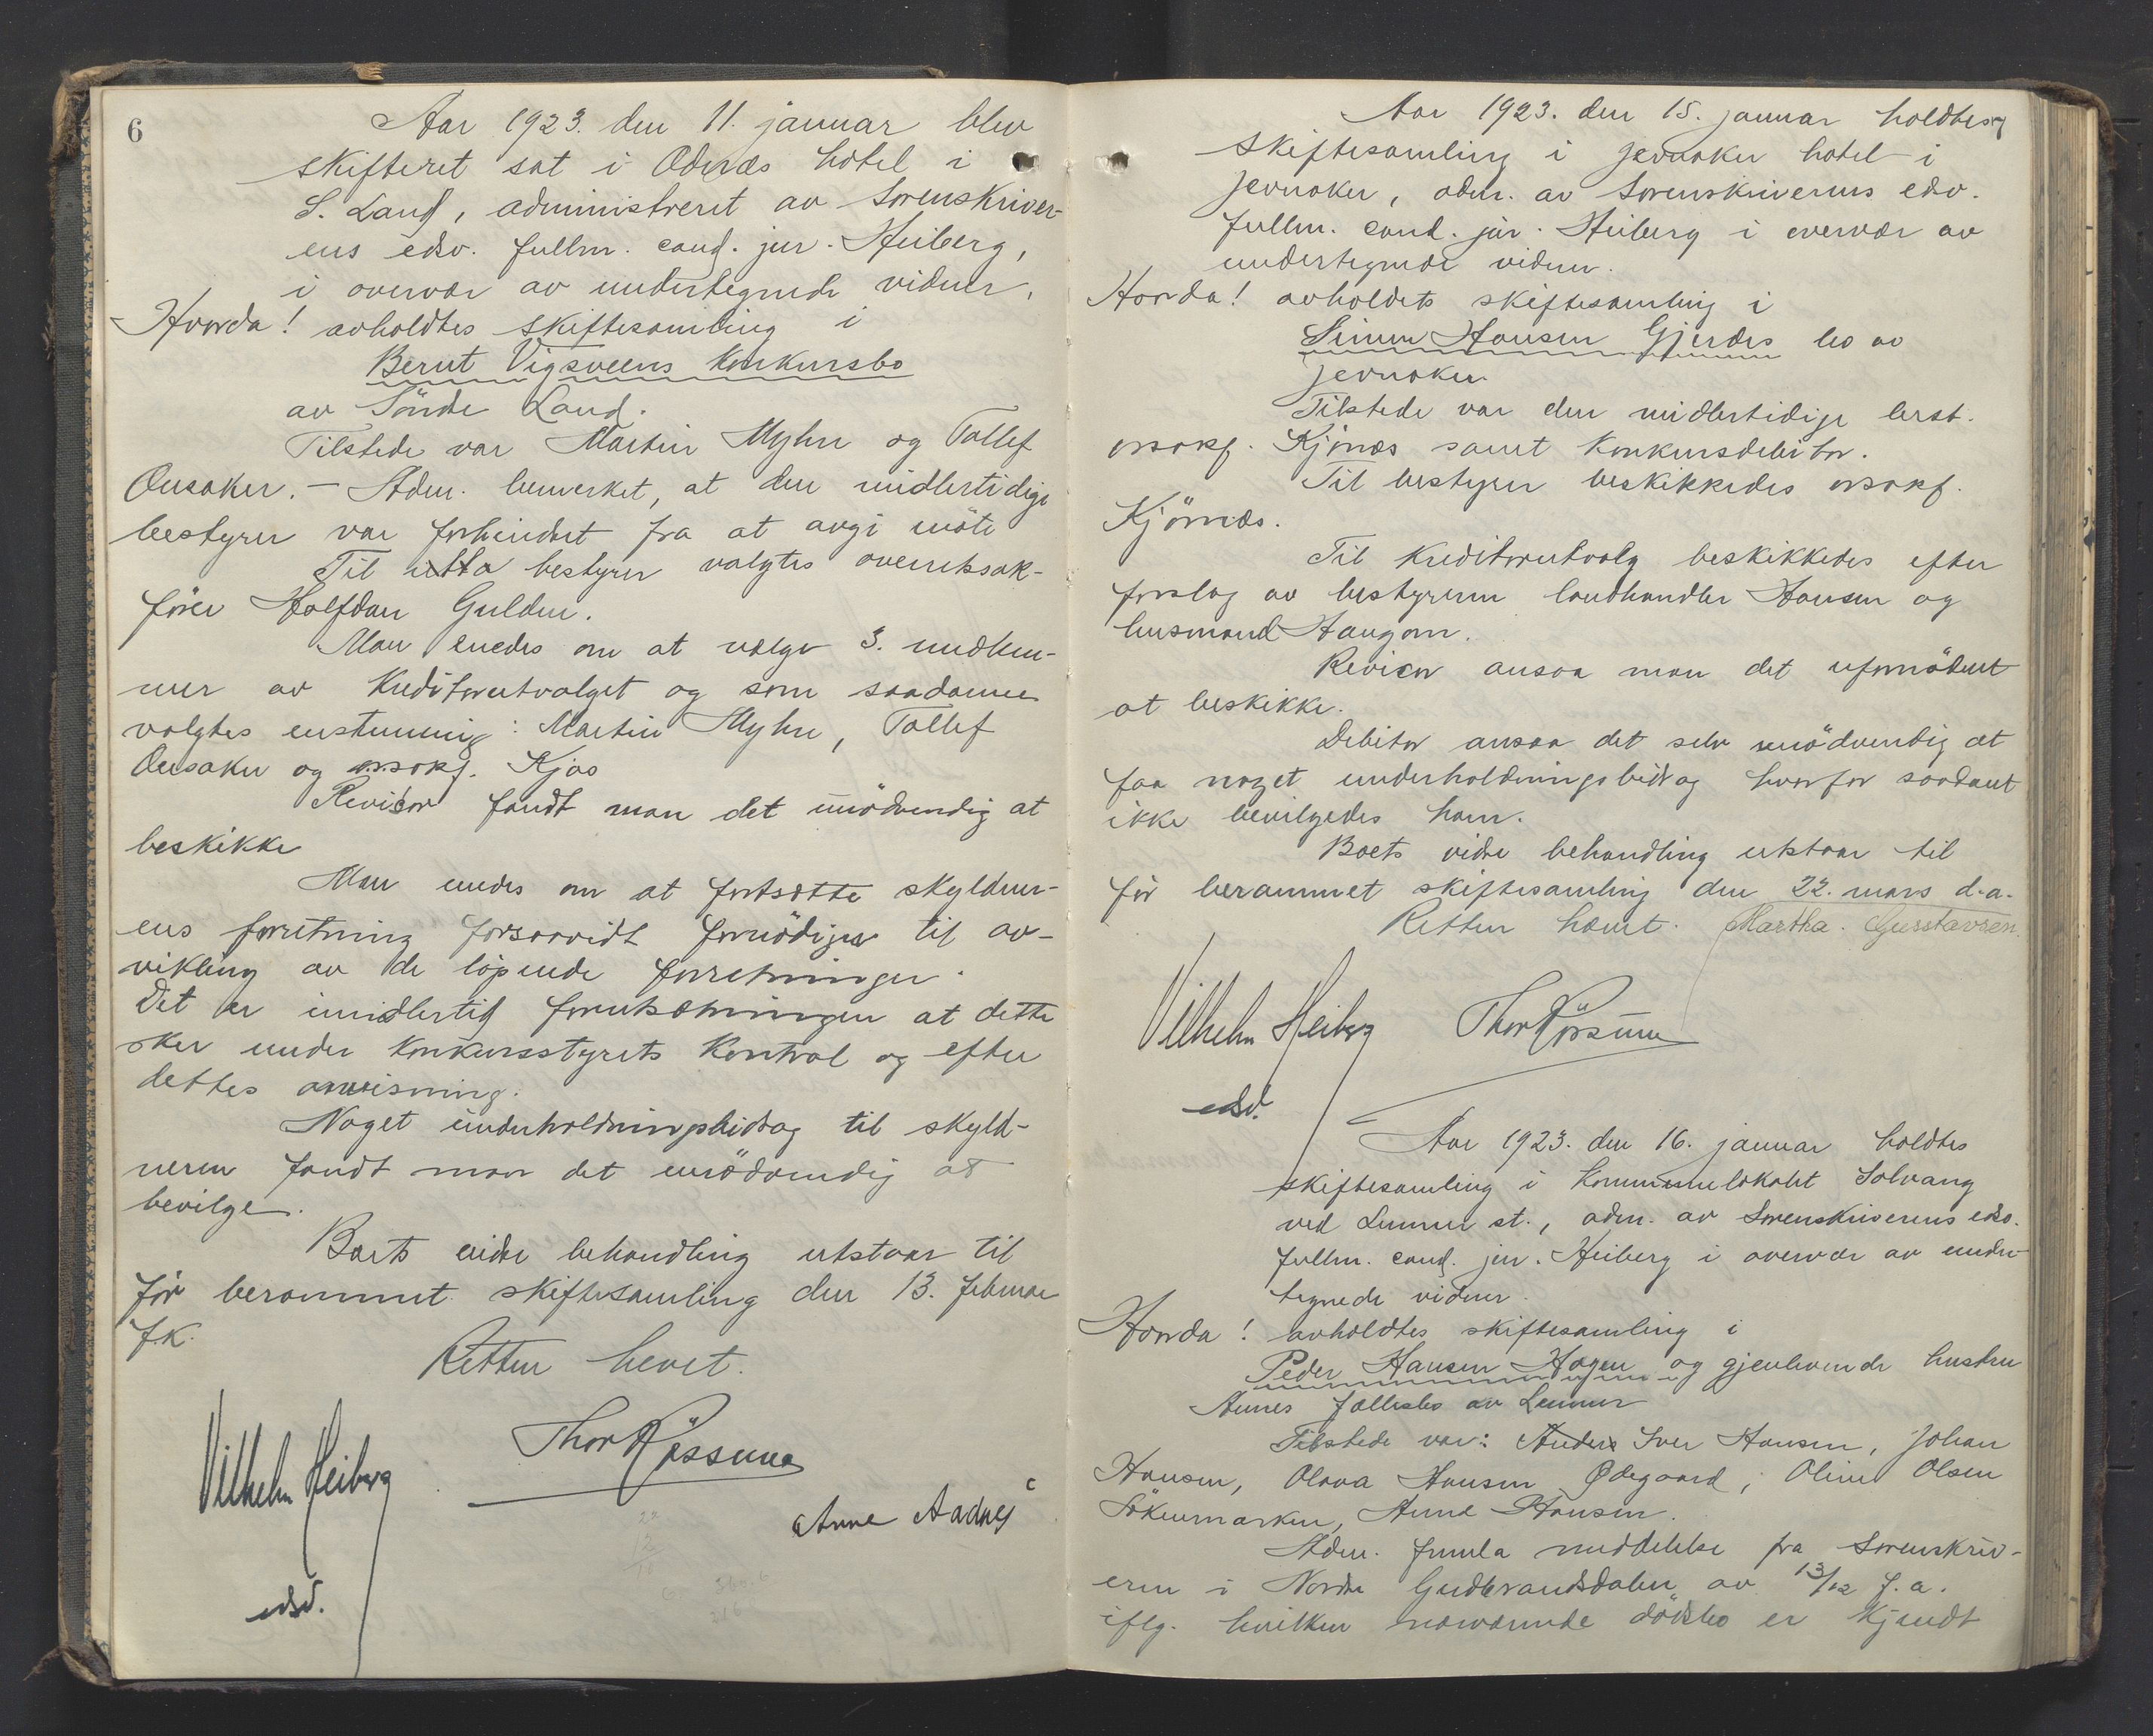 6
Aar 1923. den 11. januar blev
skifteret sat i Odnæs hotel i
S. Land, administreret av Sorenskriver-
ens edsv. fullm. cand. jur. Heiberg,
i overvær av undertegnede vidner.
Hvorda! avholdtes skiftesamling i
Bernt Vigsveens konkursbo
av Söndre Land.
Tilstede var Martin Myhre og Tollef
Onsaker. – Adm. bemerket, at den midlertidige
bestyrer var forhindret fra at avgi møte
Til bestyrer valgtes overretssak-
förer Halfdan Gulden.
Man enedes om at vælge 3. medlem-
mer av Kreditorutvalget og som saadanne
valgtes enstemmig: Martin Myhre, Tollef
Onsaker og o.r.sakf. Kjos
Revisor fandt man det unödvendig at
beskikke
Man enedes om at fortsætte skyldner-
ens forretning forsaavidt fornödiges til av-
vikling av de löpende forretninger.
Det er imidlertid forutsætningen at dette
sker under konkursstyrets kontrol og efter
dettes anvisning.
Noget underholdningsbidrag til skyld-
neren fandt man det unödvendig at
bevilge.
Boets vidre behandling utstaar til
för berammet skiftesamling den 13. februar
f.k.
Retten hevet.
Vilhelm Heiberg
edsv.
Anne Aadnes
Aar 1923. den 15. januar holdtes
skiftesamling i Jevnaker hotel i
Jevnaker, adm. av Sorenskriverens edsv.
fullm. cand. jur. Heiberg i overvær av
undertegnede vidner.
Hvorda! avholdets skiftesamling i
Simen Hansen Gjerdes bo av
Jevnaker.
Tilstede var den midlertidige best.
orsakf. Kjörnæs samt konkursdebitor.
Til bestyrer beskikkedes orsakf.
Kjörnæs.
Til Kreditorutvalg beskikkedes efter
forslag av bestyreren landhandler Hansen og
husmand Haugom.
Revisor ansaa man det ufornödent
at beskikke.
Debitor ansaa det selv unödvendig at
faa noget underholdningsbidrag hvorfor saadant
ikke bevilgedes ham.
Boets vidre behandling utstaar til
för berammet skiftesamling den 22. mars d.a.
Retten hævet. Martha Gustavsen.
Vilhelm Heiberg
edsv.
Aar 1923. den 16. januar holdtes
skiftesamling i Kommunelokalet Solvang
ved Lunner st., adm. av Sorenskriverens edsv.
fullm. cand. jur. Heiberg i overvær av under-
tegnede vidner.
Hvorda! avholdtes skiftesamling i
Peder Hansen Hagen og gjenlevende hustru
Annes fællesbo av Lunner
Tilstede var: Anders Iver Hansen, Johan
Hansen, Olava Hansen Ødegaard, Oline Olsen
Anne Hansen.
Adm. fremla meddelelse fra Sorenskriv-
eren i Nordre Gudbrandsdalen av 13/12 f.a.
iflg. hvilken nærværende dödsbo er kjendt